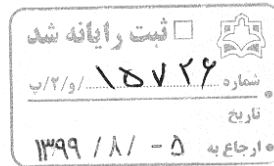 ثبت رایانه شد
شماره ۱۵۷۲۶ /و/۲/پ
تاریخ
ارجاع به ۵ - /۸/ ۱۳۹۹